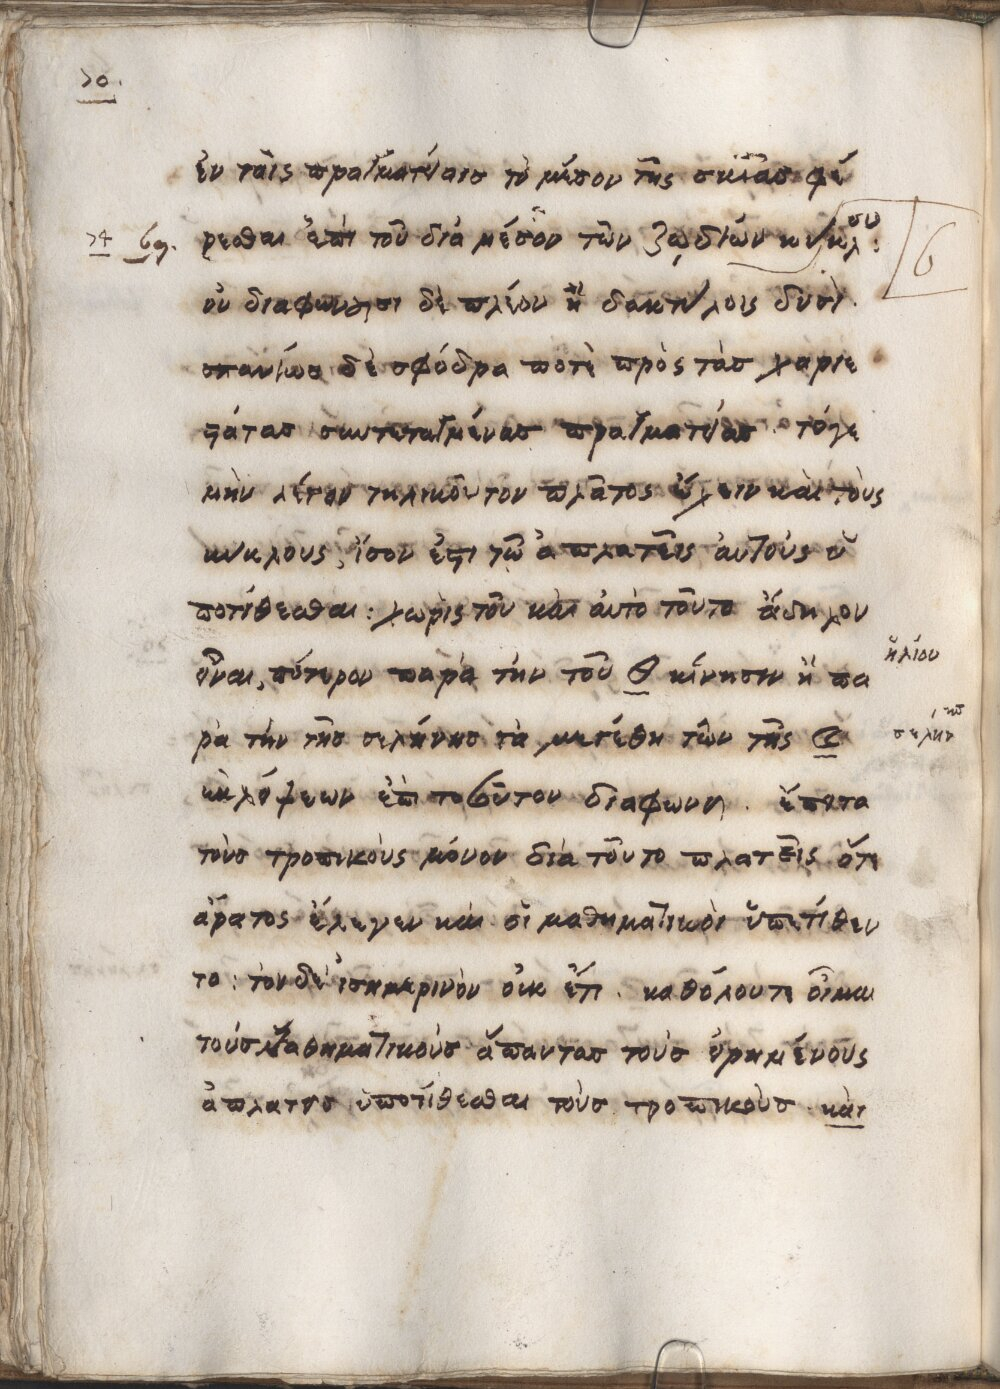 70.
ἐν ταῖς πραγματείαισ τὸ μέσον τῆς σκιᾶσ φέ
ρεσθαι ἐπὶ τοῦ διὰ μέσον τῶν ζῳδιῶν κύκλου:
οὐ διαφωνήσει δὲ πλέον ἢ δακτύλοις δυσὶ.
σπανίωσ δὲ σφόδρα ποτὲ πρὸς τὰσ χαριε
στάτασ συντεταγμένασ πραγματείασ. τόγε
μὴν λέγειν τηλικοῦτον πλᾶτος ἔχειν καὶ τοὺς
κύκλους, ἴσον ἐστι τῶ ἀπλατεῖς αὐτοὺς ὑ
ποτίθεσθαι: χωρὶς τοῦ καὶ αὐτὸ τοῦτο ἄδηλον
εἶναι, πότερον παρὰ τὴν τοῦ Θ κίνησιν ἢ πα
ἡλίου
ρὰ τὴν τῆσ σελήνησ τὰ μεγέθη τῶν τῆς
σελήνησ
ἐκλείψεων ἐπὶ τοσοῦτον διαφωνεῖ. ἔπειτα
τοὺσ τροπικοὺς μόνον διὰ τοῦτο πλατεῖς ὅτι
ἄρατος ἔλεγεν καὶ οἱ μαθηματικοὶ ὑπετίθεν
το: τὸν δὲ ἰσημερινὸν οὐκ ἔτι. καθόλου τε οἶμαι
τοὺσ μαθηματικοὺσ ἅπαντασ τοὺσ εἰρημένους
ἀπλατεῖσ ὑποτίθεσθαι τοὺσ τροπικοὺσ. καὶ